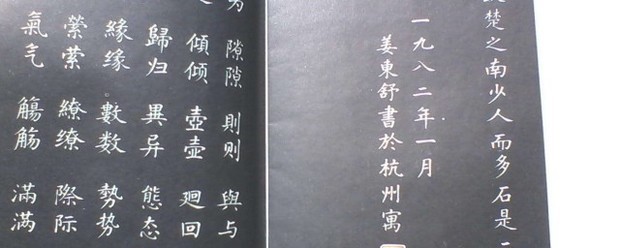 楚之南少人而多石是
一九八二年一月
姜東舒書於杭州寓
隙隙 則则 與与
傾倾 壺壶 廻回
歸归 異异 態态
緣缘 數数 勢势
縈萦 繚缭 際际
氣气 觴觞 滿满